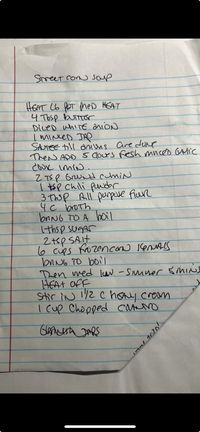 Street corn soup
HEAT LG POT MED HEAT
4 Tbsp butter
DICED white onion
1 MINCED JAP
Sautee till onions are done
Then ADD 5 cloves fresh minced Garlic
cook 1min.
2 tsp Ground cumin
1 tsp chili powder
3 TBSP All purpose flour
4 C broth
bring TO A boil
1 tbsp sugar
2 tsp SAlt
6 cups frozen corn kernals
bring TO boil
Then med low - simmer 5 mins
HEAT OFF
Stir IN 1 1/2 C heavy cream
1 cup chopped